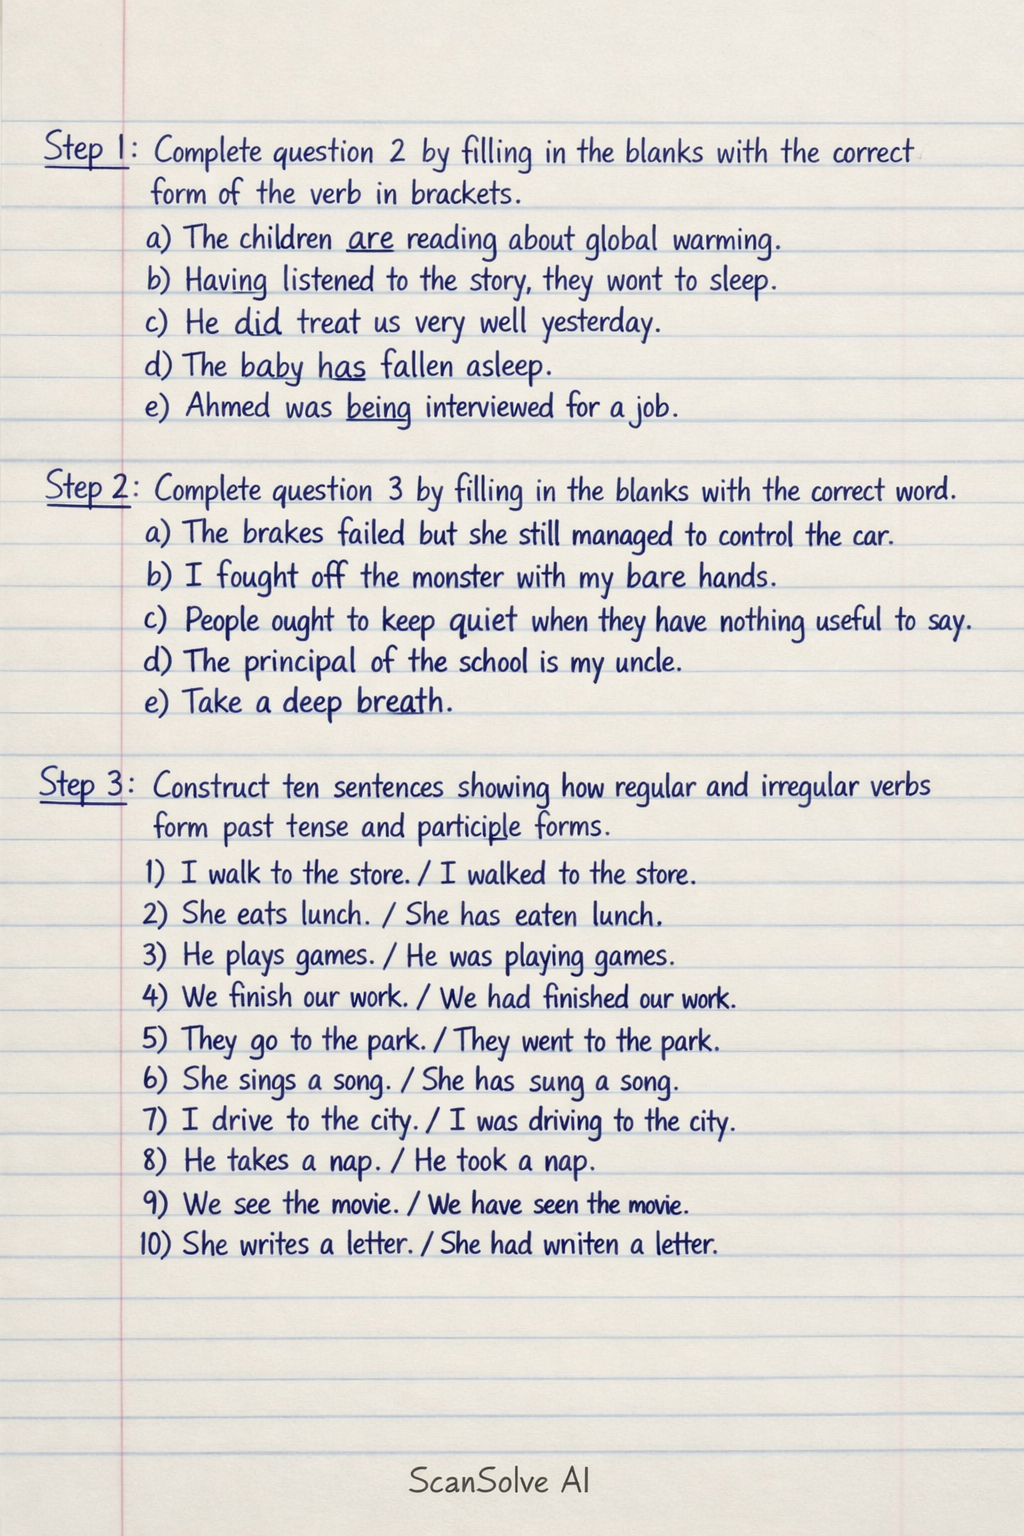 Step 1: Complete question 2 by filling in the blanks with the correct
form of the verb in brackets.
a) The children are reading about global warming.
b) Having listened to the story, they wont to sleep.
c) He did treat us very well yesterday.
d) The baby has fallen asleep.
e) Ahmed was being interviewed for a job.
Step 2: Complete question 3 by filling in the blanks with the correct word.
a) The brakes failed but she still managed to control the car.
b) I fought off the monster with my bare hands.
c) People ought to keep quiet when they have nothing useful to say.
d) The principal of the school is my uncle.
e) Take a deep breath.
Step 3: Construct ten sentences showing how regular and irregular verbs
form past tense and participle forms.
1) I walk to the store. / I walked to the store.
2) She eats lunch. / She has eaten lunch.
3) He plays games. / He was playing games.
4) We finish our work. / We had finished our work.
5) They go to the park. / They went to the park.
6) She sings a song. / She has sung a song.
7) I drive to the city. / I was driving to the city.
8) He takes a nap. / He took a nap.
9) We see the movie. / We have seen the movie.
10) She writes a letter. / She had wniten a letter.
ScanSolve AI